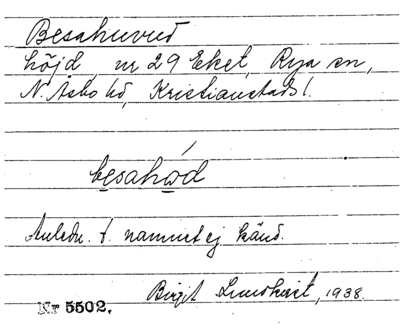 Besahuvud
höjd, nr 29 Eket, Rya sn,
N. Åsbo hd, Kristianstads l.
besahód
Anledn. t. namnet ej känd.
Birgit Lundkvist, 1938.
Nr 5502.